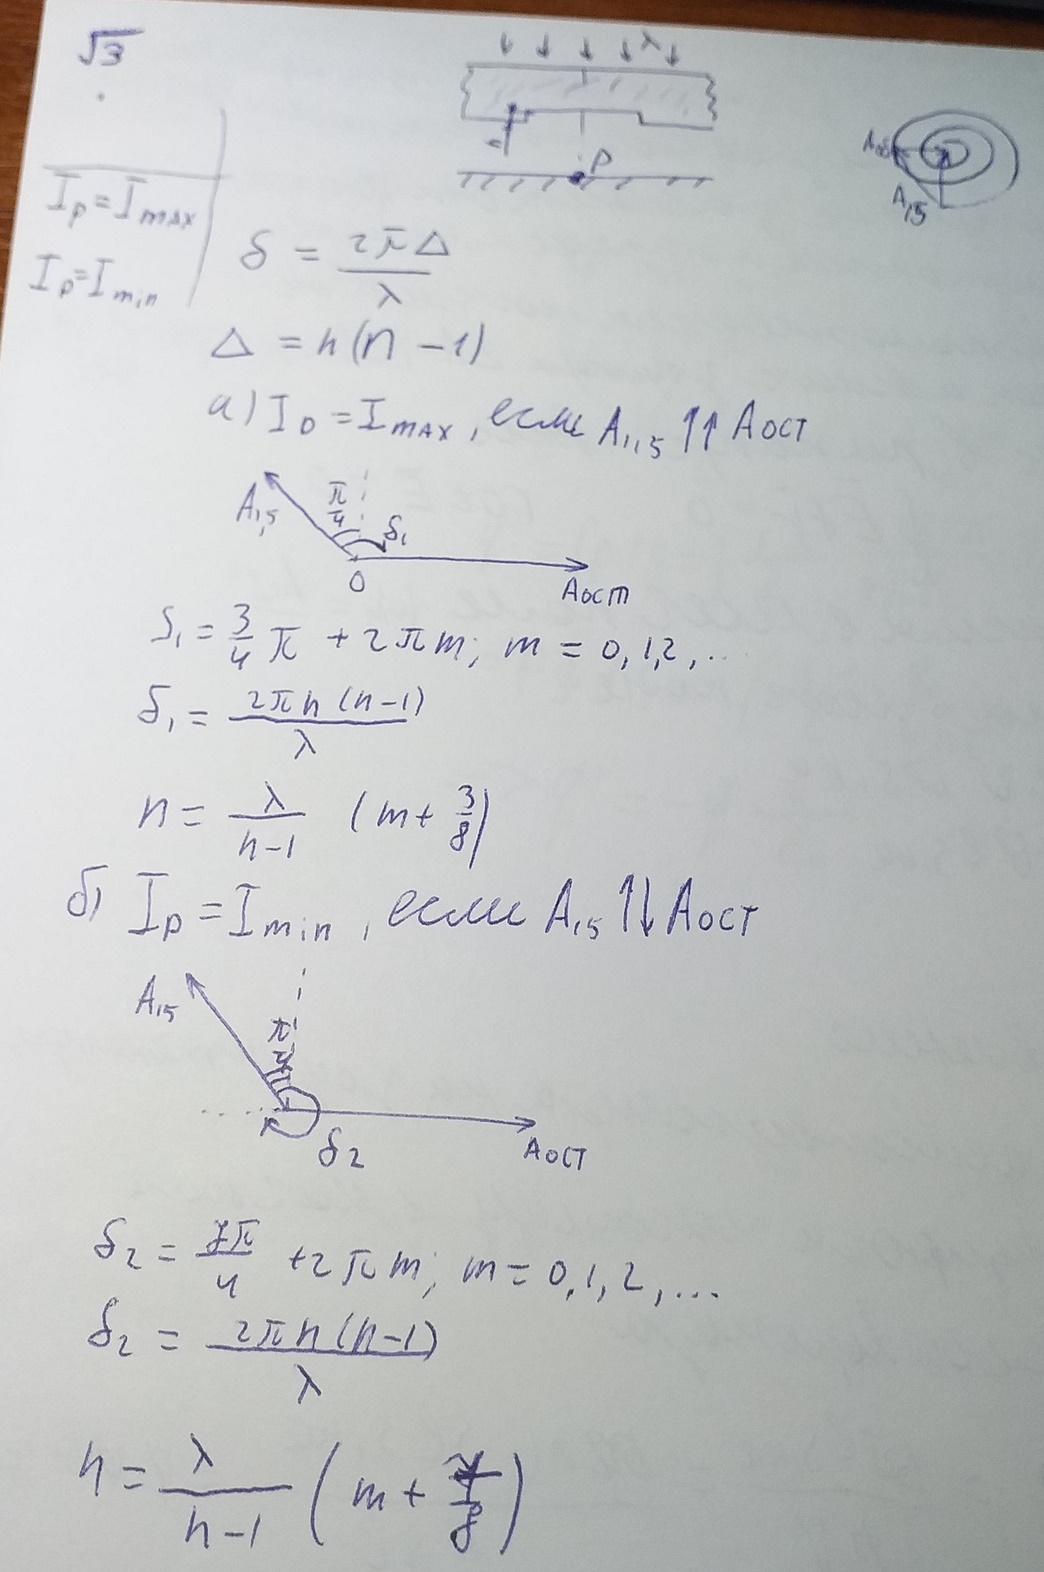 √3
λ
P
A∞
A1,5
Iр = Imax
Iр = Imin
δ = 2πΔ / λ
Δ = h(n − 1)
а) Iр = Imax, если A1,5 ↑↑ Aост
A1,5
π/4
δ1
O
Aост
δ1 = 3/4 π + 2πm; m = 0, 1, 2, ...
δ1 = 2πh(n−1) / λ
h = λ / (n−1) (m + 3/8)
б) Iр = Imin, если A1,5 ↑↓ Aост
A1,5
π/4
δ2
Aост
δ2 = 7π/4 + 2πm; m = 0, 1, 2, ...
δ2 = 2πh(n−1) / λ
h = λ / (n−1) (m + 7/8)